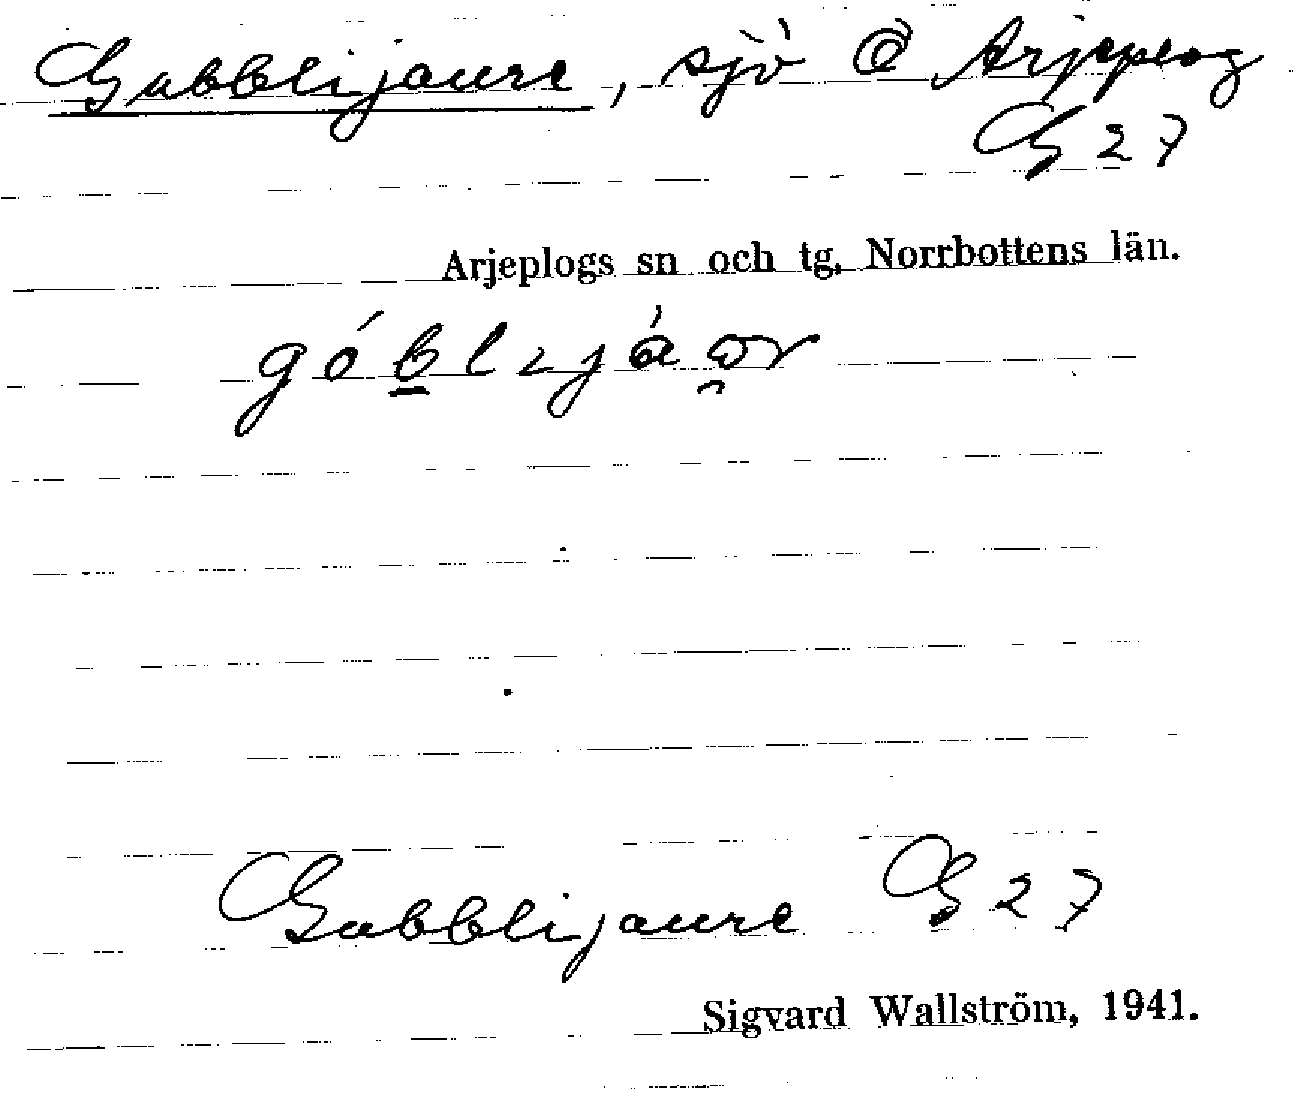 Gubblijaure, sjö @ Arjeplog
G 27
Arjeplogs sn och tg, Norrbottens län.
gób̲lɩjáω̯r
Gubblijaure G 27
Sigvard Wallström, 1941.